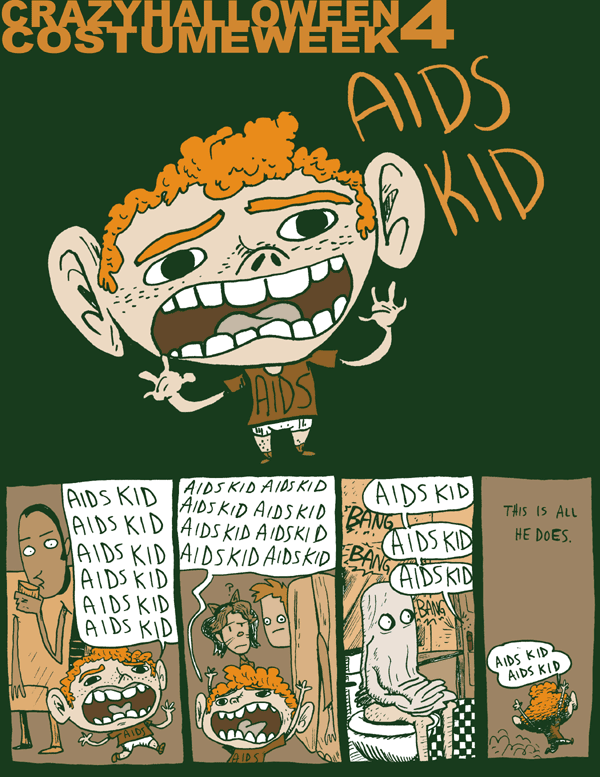 CRAZYHALLOWEEN
COSTUMEWEEK4
AIDS
KID
AIDS
AIDS KID
AIDS KID
AIDS KID
AIDS KID
AIDS KID
AIDS KID
AIDS
AIDS KID AIDS KID
AIDS KID AIDS KID
AIDS KID AIDS KID
AIDS KID AIDS KID
?
AIDS
AIDS KID
BANG
AIDS KID
BANG
AIDS KID
BANG
THIS IS ALL
HE DOES.
AIDS KID
AIDS KID